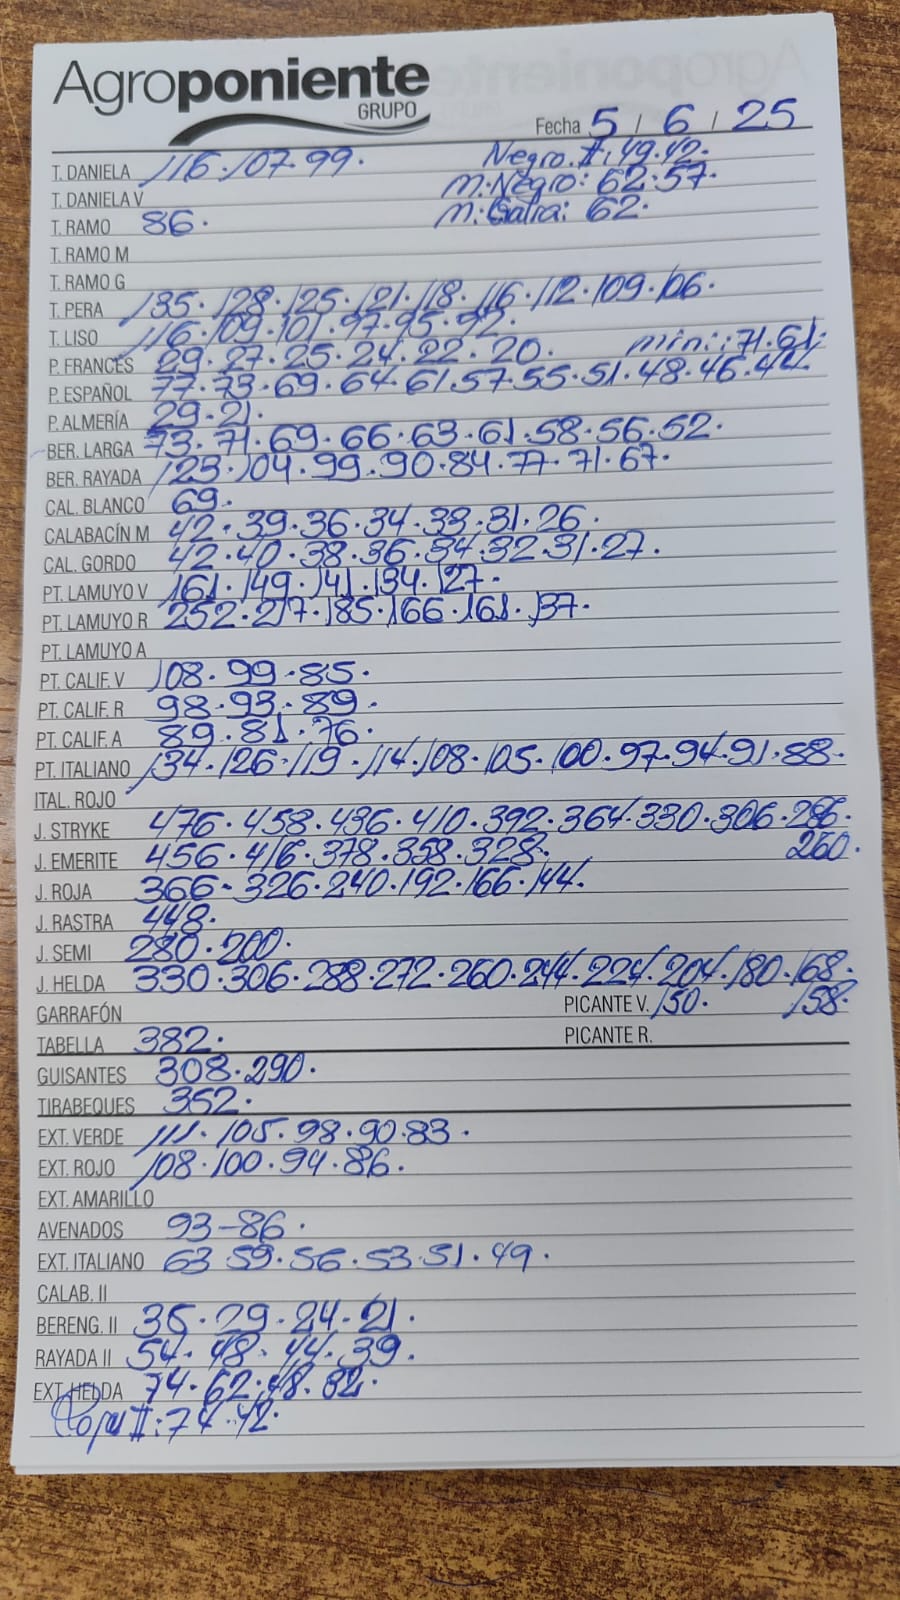 Agroponiente
GRUPO
Fecha 5 / 6 / 25
Negro.II: 49.42.
T. DANELA 116.107.99.
M.Negro: 62.57.
T. DANIELA V
M.Galia: 62.
T. RAMO 86.
T. RAMO M
T. RAMO G
T. PERA 135.128.125.121.118.116.112.109.106.
T. LISO 116.109.101.97.95.92.
P. FRANCÉS 29.27.25.24.22.20. mini: 71.61.
P. ESPAÑOL 77.73.69.64.61.57.55.51.48.46.44.
P. ALMERÍA 29.21.
BER. LARGA 73.71.69.66.63.61.58.56.52.
BER. RAYADA 123.104.99.90.84.77.71.67.
CAL. BLANCO 69.
CALABACÍN M 42.39.36.34.33.31.26.
CAL. GORDO 42.40.38.36.34.32.31.27.
PT. LAMUYO V 161.149.141.134.127.
PT. LAMUYO R 252.217.185.166.161.137.
PT. LAMUYO A
PT. CALIF. V 108.99.85.
PT. CALIF. R 98.93.89.
PT. CALIF. A 89.81.76.
PT. ITALIANO 134.126.119.114.108.105.100.97.94.91.88.
ITAL. ROJO
J. STRYKE 476.458.436.410.392.364.330.306.286.
J. EMERITE 456.416.378.358.328. 260.
J. ROJA 366.326.240.192.166.144.
J. RASTRA 448.
J. SEMI 280.200.
J. HELDA 330.306.288.272.260.244.224.204.180.168.
GARRAFÓN PICANTE V. 150. 158.
TABELLA 382. PICANTE R.
GUISANTES 308.290.
TIRABEQUES 352.
EXT. VERDE 111.105.98.90.83.
EXT. ROJO 108.100.94.86.
EXT. AMARILLO
AVENADOS 93-86.
EXT. ITALIANO 63 59.56.53.51.49.
CALAB. II
BERENG. II 35.29.24.21.
RAYADA II 54.48.44.39.
EXT. HELDA 74.62.48.32.
II: 74.42.